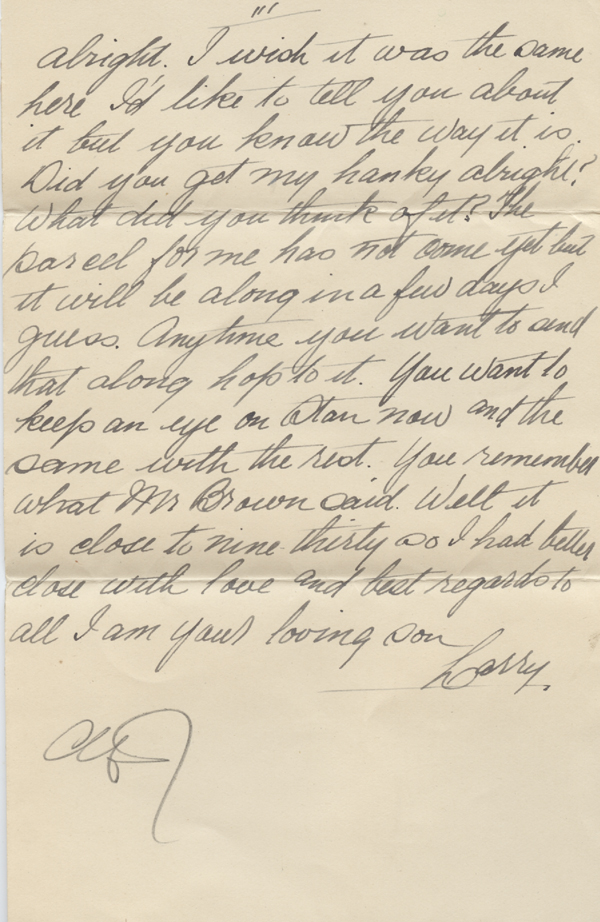 "'
alright. I wish it was the same
here I'd like to tell you about
it but you know the way it is.
Did you get my hanky alright?
What did you think of it? The
parcel for me has not come yet but
it will be along in a few days I
guess. Anytime you want to send
that along hop to it. You want to
keep an eye on Stan now and the
same with the rest. You remember
what Mr Brown said. Well it
is close to nine-thirty so I had better
close with love and best regards to
all I am your loving son
Larry.